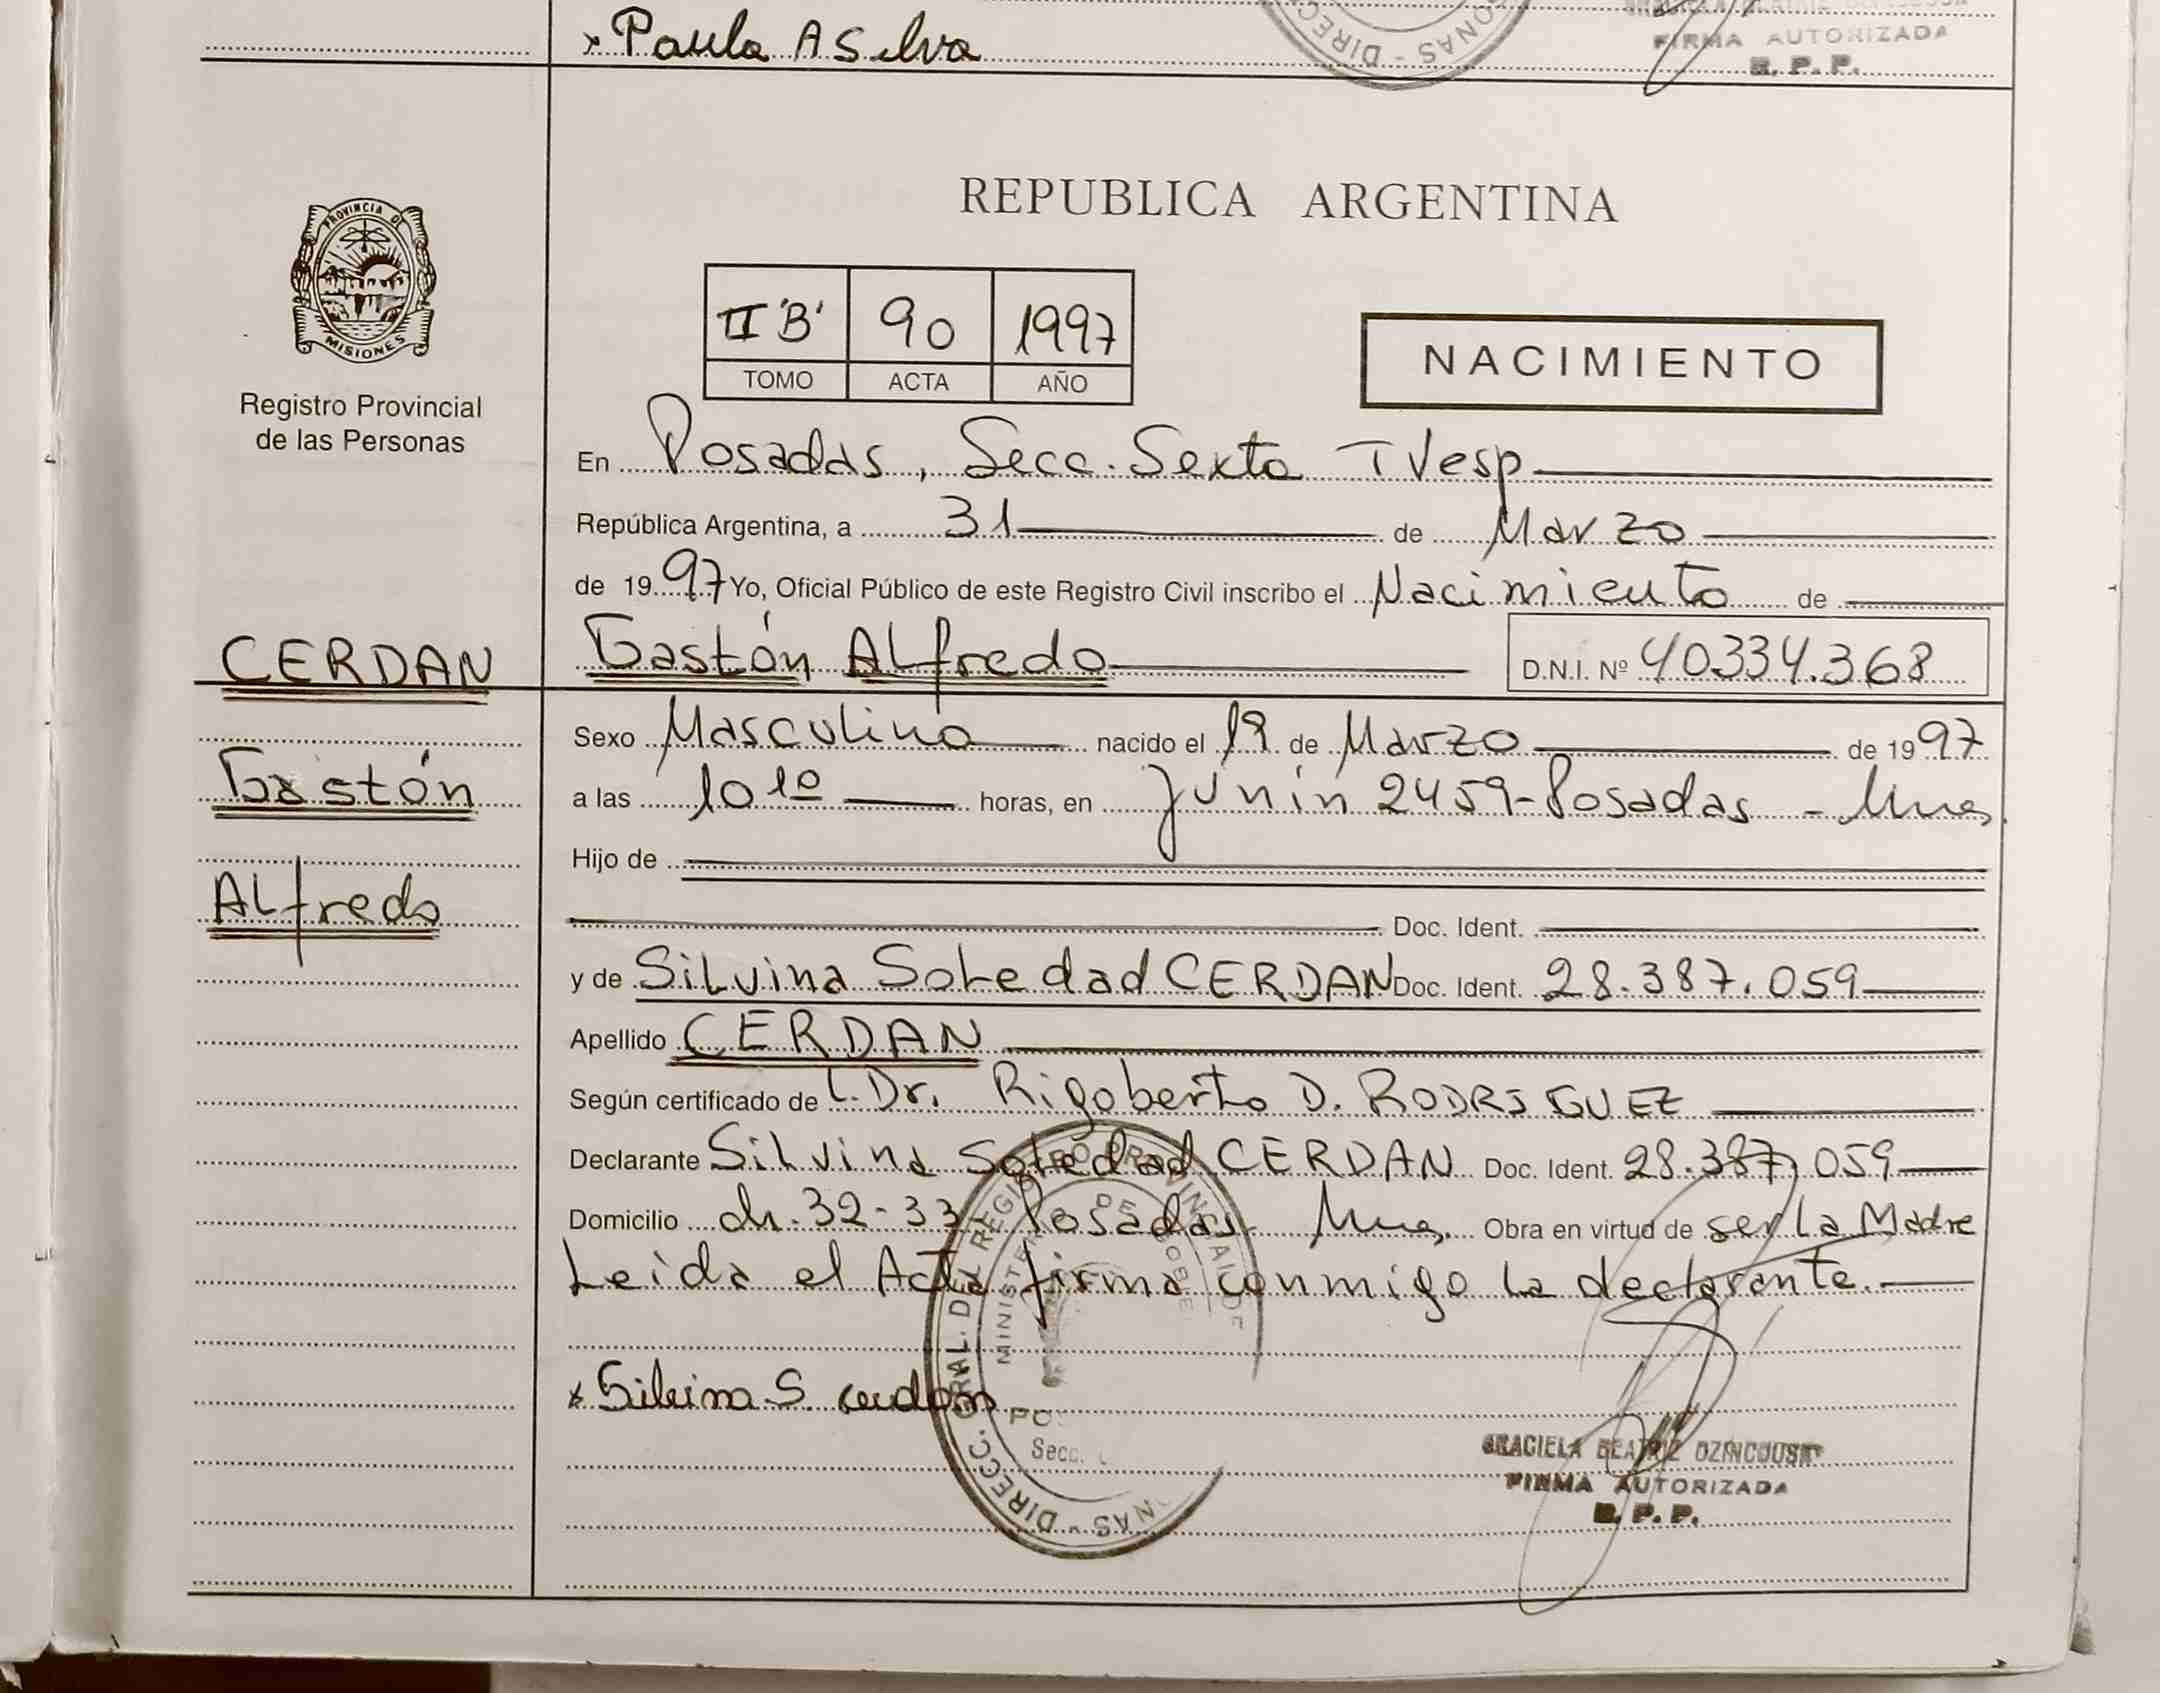 × Paula A Silva
ONAS - DIREC
FIRMA AUTORIZADA
R. P. P.
PROVINCIA DE
MISIONES
Registro Provincial
de las Personas
REPUBLICA ARGENTINA
II 'B' 90 1997
TOMO ACTA AÑO
NACIMIENTO
En Posadas, Secc. Sexta T Vesp
República Argentina, a 31 de Marzo
de 1997 Yo, Oficial Público de este Registro Civil inscribo el Nacimiento de
CERDAN Gastón ALfredo D.N.I. Nº 40334.368
Sexo Masculino nacido el 19 de Marzo de 1997
Gastón
a las 10 10 horas, en Junín 2459 - Posadas - Mnes
Hijo de
ALfredo
Doc. Ident.
y de SiLvina SoLedad CERDAN Doc. Ident. 28.387.059
Apellido CERDAN
Según certificado de L. Dr. Rigoberto D. RODRIGUEZ
Declarante SiLvina SoLedad CERDAN Doc. Ident. 28.387.059
Domicilio ch. 32-33 - Posadas - Mnes. Obra en virtud de ser La Madre
Leida el Acta firma conmigo La declarante.
× Silvina S. Cerdan
DIRECC. GRAL. DEL REGISTRO PROVINCIAL DE
NAS -
Secc.
GRACIELA BEATRIZ
FIRMA AUTORIZADA
R. P. P.